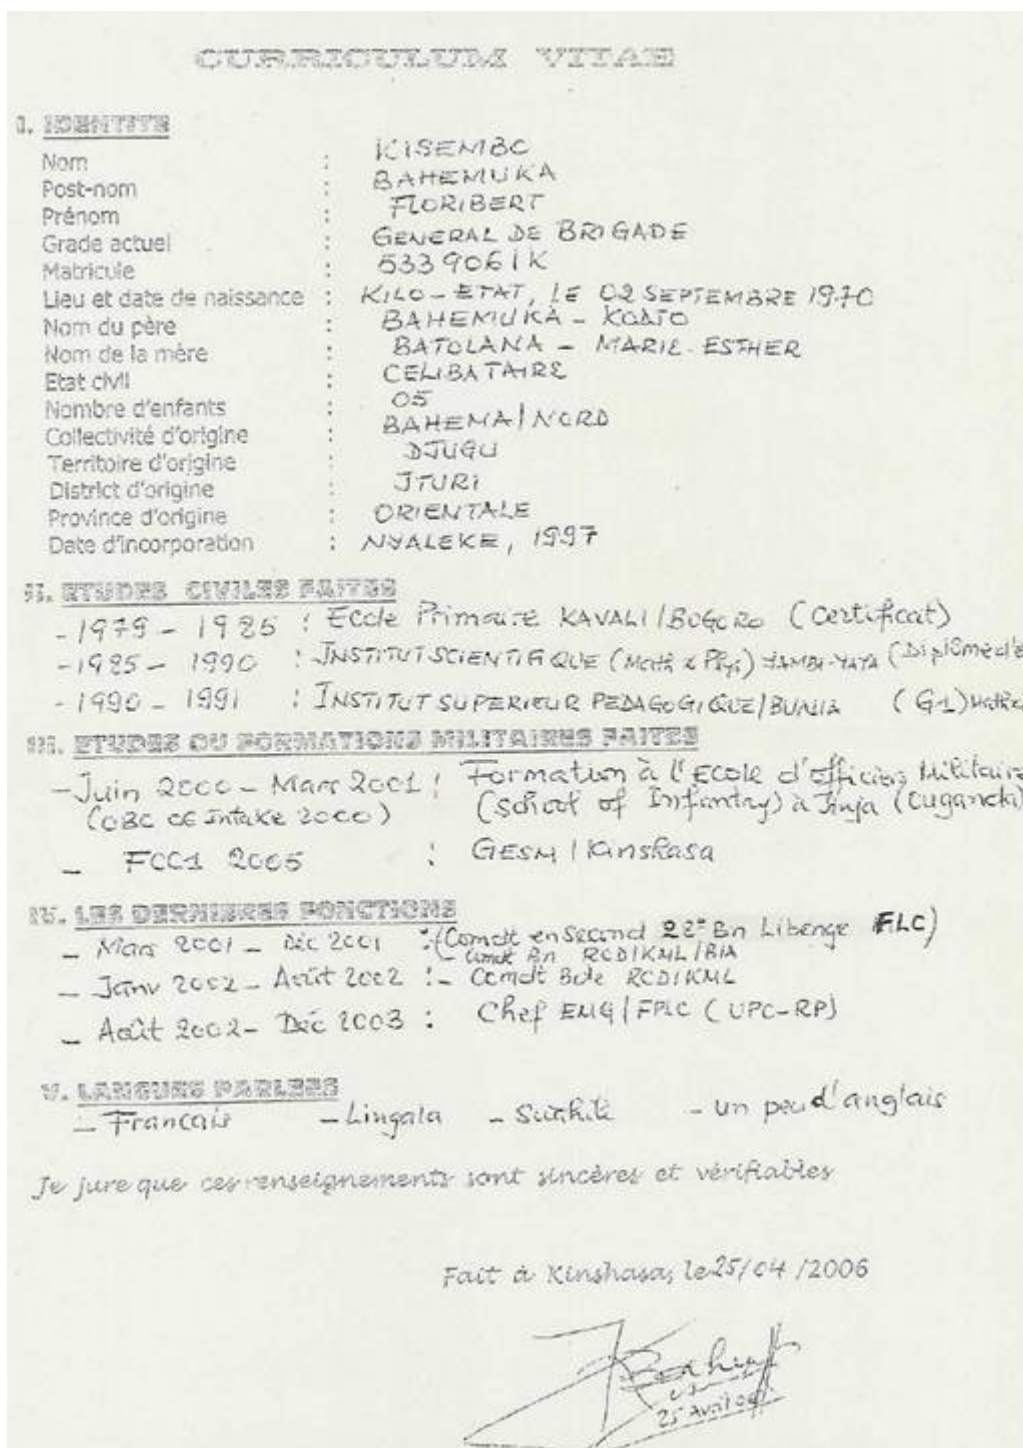 CURRICULUM VITAE
I. IDENTITE
Nom : KISEMBO
Post-nom : BAHEMUKA
Prénom : FLORIBERT
Grade actuel : GENERAL DE BRIGADE
Matricule : 5339061K
Lieu et date de naissance : KILO-ETAT, LE 02 SEPTEMBRE 1970
Nom du père : BAHEMUKA -
Nom de la mère : BATOLANA - MARIE-ESTHER
Etat civil : CELIBATAIRE
Nombre d'enfants : 05
Collectivité d'origine : BAHEMA/NORD
Territoire d'origine : DJUGU
District d'origine : ITURI
Province d'origine : ORIENTALE
Date d'incorporation : NYALEKE, 1997
II. ETUDES CIVILES FAITES
- 1979 - 1985 : Ecole Primaire KAVALI/BOGORO (Certificat)
- 1985 - 1990 : INSTITUT SCIENTIFIQUE (Math & Phys) (Diplôme d'E
- 1990 - 1991 : INSTITUT SUPERIEUR PEDAGOGIQUE/BUNIA (G1)
III. ETUDES OU FORMATIONS MILITAIRES FAITES
- Juin 2000 - Mars 2001 : Formation à l'Ecole d'officiers Militaire
(OBC 06 Intake 2000) (School of Infantry) à Jinja (Ouganda)
- FCC1 2005 : GESM/Kinshasa
IV. LES DERNIERES FONCTIONS
- Mars 2001 - Déc 2001 : (Comdt en Second 22° Bn Libenge FLC)
- Comdt Bn RCD/KML/BIA
- Janv 2002 - Août 2002 : - Comdt Bde RCD/KML
- Août 2002 - Déc 2003 : Chef EMG/FPLC (UPC-RP)
V. LANGUES PARLEES
- Français - Lingala - Swahili - un peu d'anglais
Je jure que ces renseignements sont sincères et vérifiables
Fait à Kinshasa, le 25/04/2006
25 Avril 06